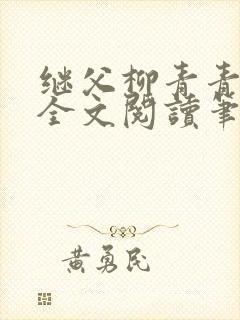 继父柳青青
全文閱讀筆
黄勇民